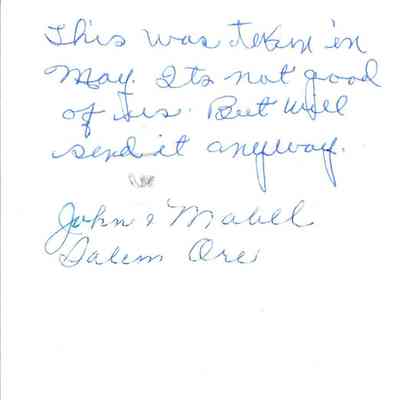 This was taken in
May. Its not good
of us. But will
send it anyway.
John & Mabel
Salem Ore